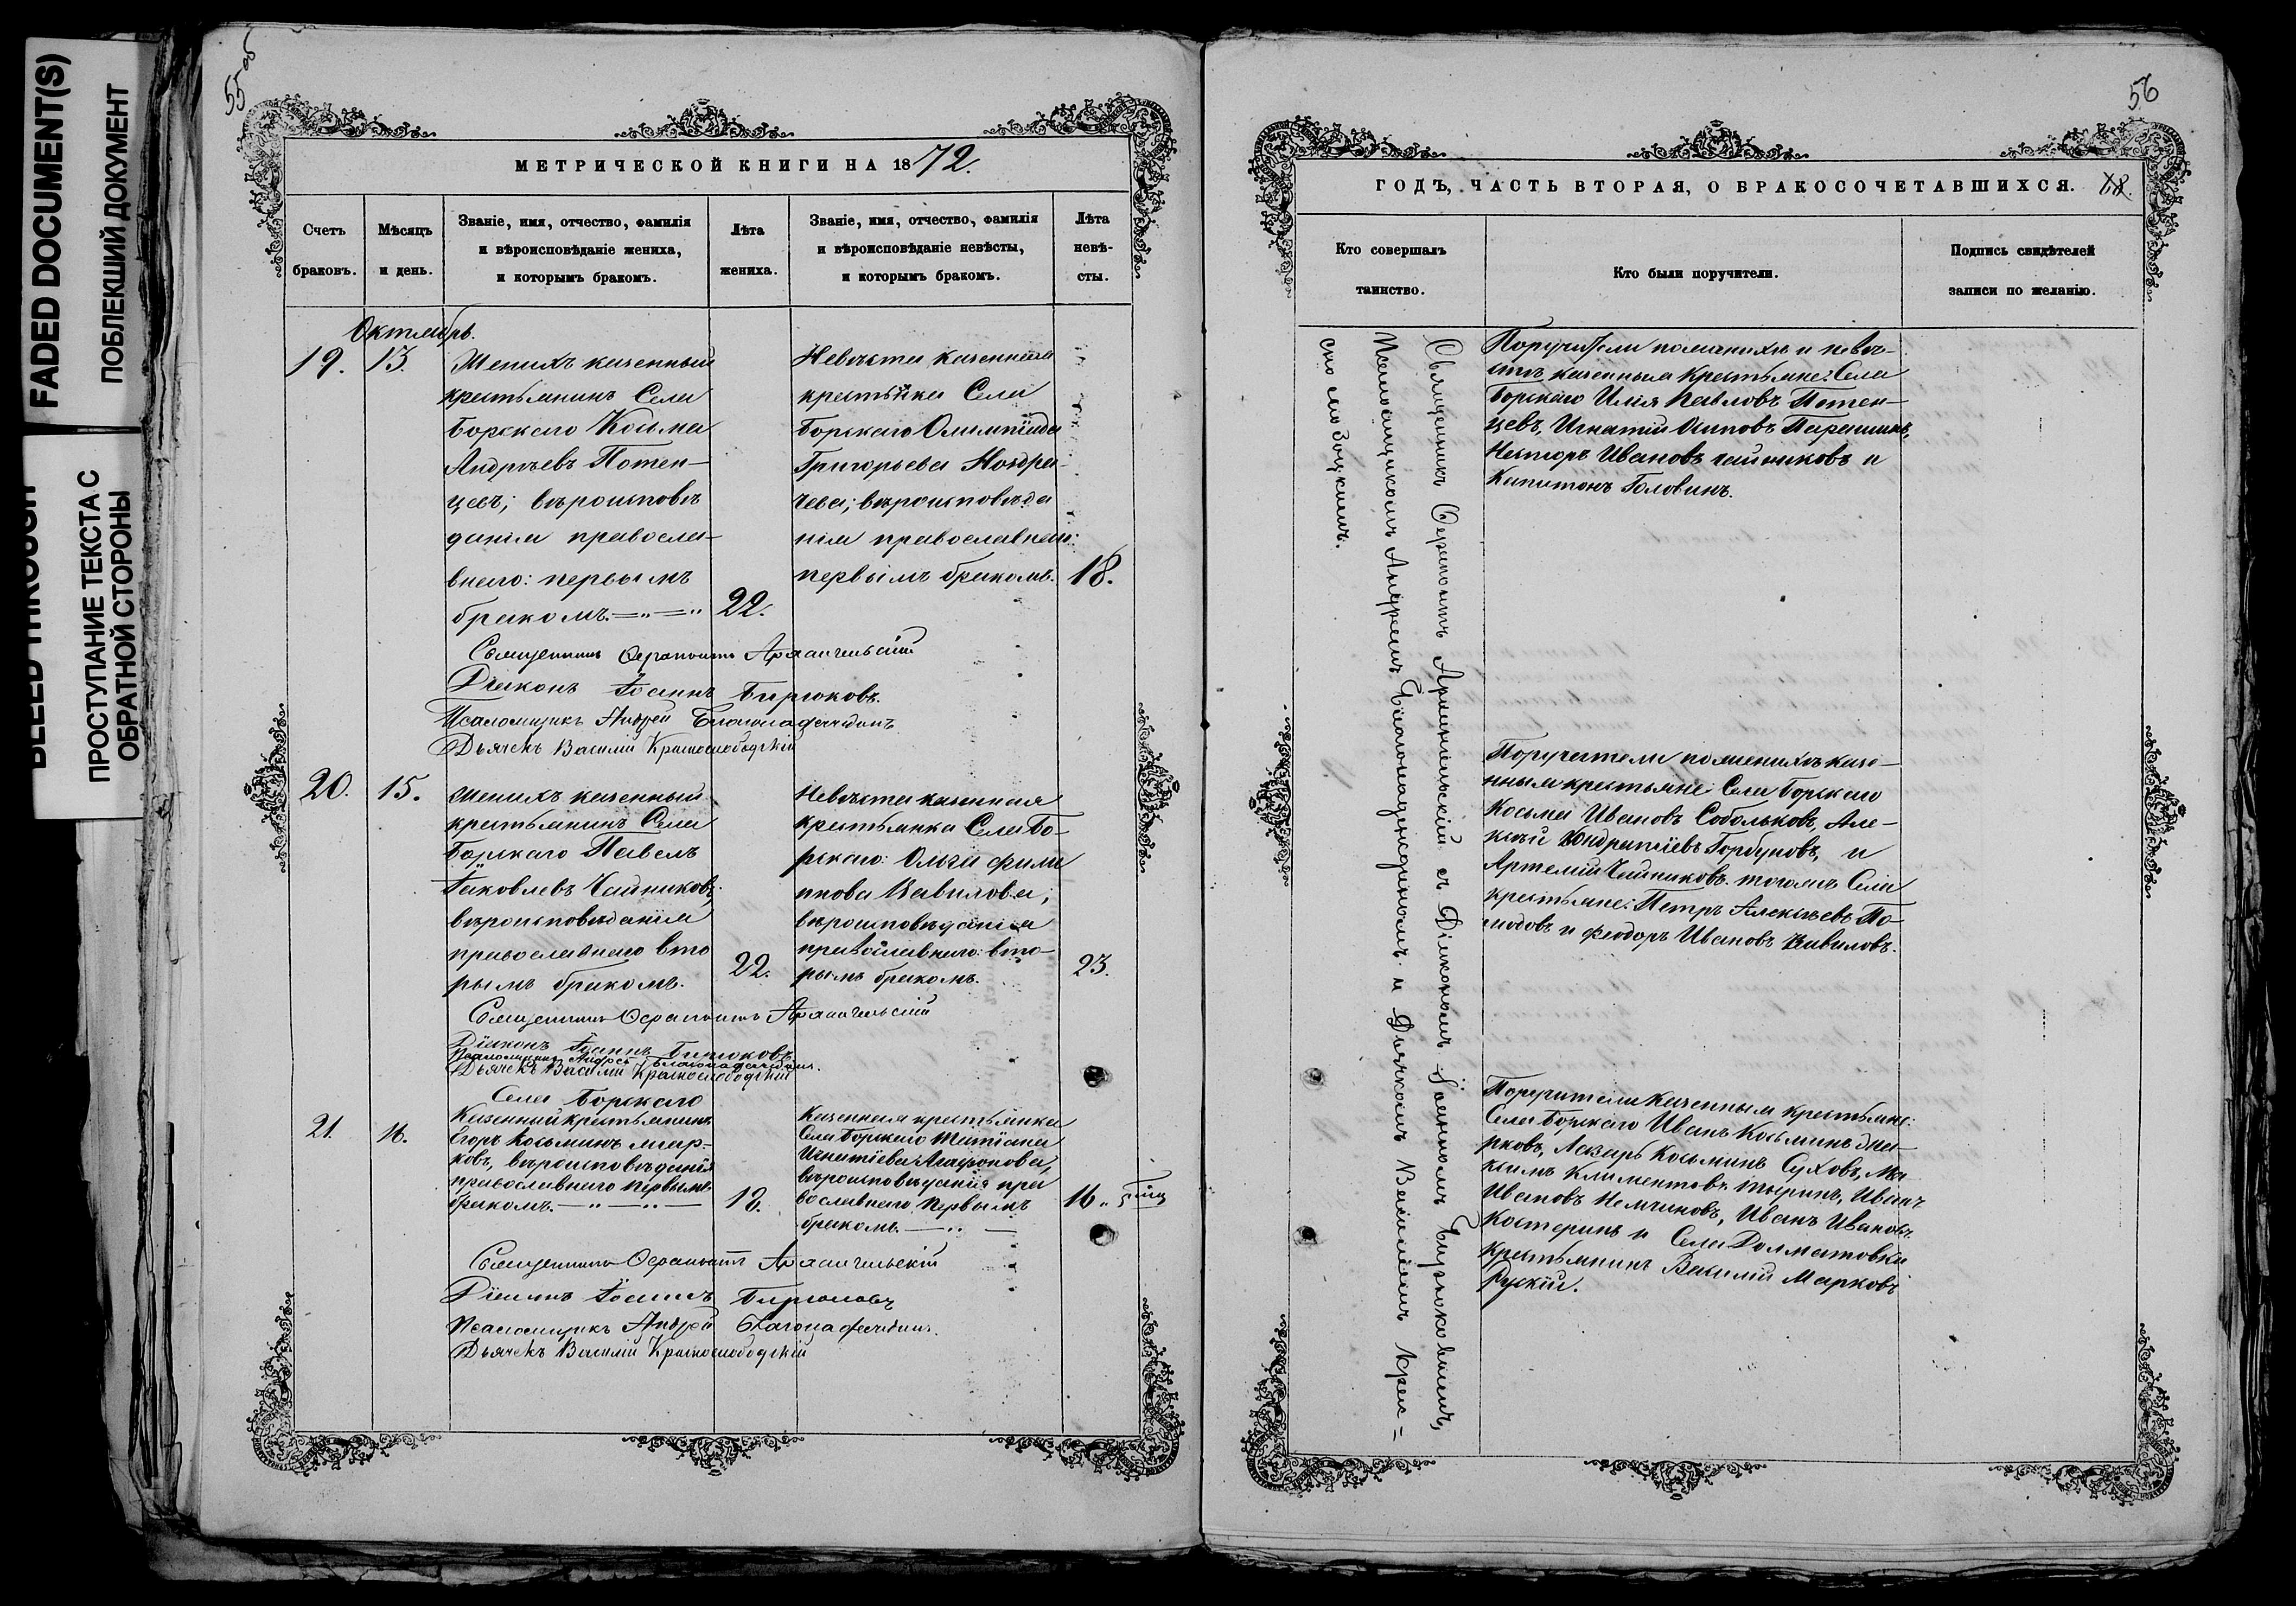 FADED DOCUMENT(S)
ПОБЛЕКШИЙ ДОКУМЕНТ
BLEED THROUGH
ПРОСТУПАНИЕ ТЕКСТА С
ОБРАТНОЙ СТОРОНЫ
55 об
МЕТРИЧЕСКОЙ КНИГИ НА 1872.
Счетъ браковъ.
Мѣсяцъ и день.
Званіе, имя, отчество, фамилія
и вѣроисповѣданіе жениха,
и которымъ бракомъ.
Лѣта жениха.
Званіе, имя, отчество, фамилія
и вѣроисповѣданіе невѣсты,
и которымъ бракомъ.
Лѣта невѣ-
сты.
Октябрь.
19. 13.
Женихъ казенный
крестьянинъ Села
Борскаго Косма
Андреевъ Потен-
цевъ; вѣроисповѣ
данія правосла-
внаго: первымъ
бракомъ.
22.
Невѣста казенная
крестьянка Села
Борскаго Олимпіада
Григорьева Ноздра-
чева; вѣроисповѣда
нія православнаго:
первымъ бракомъ.
18.
Священникъ Серапонъ Архангельскій
Діаконъ Іоаннъ Бирюковъ.
Псаломщикъ Андрей Благонадеждинъ
Дьячекъ Василій Краснослободскій
20. 15.
Женихъ казенный
крестьянинъ Села
Борскаго Павелъ
Іаковлевъ Чайниковъ;
вѣроисповѣданія
православнаго вто
рымъ бракомъ.
22.
Невѣста казенная
крестьянка Села Бо-
рскаго: Ольга Фили
ппова Вавилова;
вѣроисповѣданія
православнаго: вто-
рымъ бракомъ.
23.
Священникъ Серапонъ Архангельскій
Діаконъ Іоаннъ Бирюковъ
Псаломщикъ Андрей Благонадеждинъ.
Дьячекъ Василій Краснослободскій
21. 16.
Села Борскаго
Казенный крестьянинъ
Егоръ Косьминъ Мар-
ковъ, вѣроисповѣданія
православнаго первымъ
бракомъ.
18.
Казенная крестьянка
Села Борскаго Татіана
Игнатіева Агафонова,
вѣроисповѣданія пра
вославнаго первымъ
бракомъ.
16
Священникъ Серапонъ Архангельскій
Діаконъ Іоаннъ Бирюковъ
Псаломщикъ Андрей Благонадеждинъ.
Дьячекъ Василій Краснослободскій
56
ГОДЪ, ЧАСТЬ ВТОРАЯ, О БРАКОСОЧЕТАВШИХСЯ.
Кто совершалъ
таинство.
Кто были поручители.
Подпись свидѣтелей
записи по желанію.
Священникъ Серапонъ Архангельскій съ Діакономъ Іоанномъ Бирюковымъ,
Псаломщикомъ Андреемъ Благонадеждинымъ и Дьячкомъ Василіемъ Крас=
но слободскимъ.
Поручители по женихѣ и невѣ-
стѣ казенныя крестьяне: Села
Борскаго Илія Павловъ Потен-
цевъ, Игнатій Осиповъ Парашинъ,
Несторъ Ивановъ Чайниковъ и
Капитонъ Головинъ.
Поручители по женихѣ казе-
нныя крестьяне: Села Борскаго
Косма Ивановъ Собольковъ, Але-
ксѣй Кондратіевъ Горбуновъ, и
Артемій Чайниковъ. тогожъ Села
крестьяне: Петръ Алексѣевъ
и Феодоръ Ивановъ Вавиловъ.
Поручители казенныя крестьяне:
Села Борскаго Иванъ Косьминъ Ма-
рковъ, Лазарь Косьминъ Суховъ, Ма
ксимъ Климентовъ Тыринъ, Иванъ
Ивановъ Немчиновъ, Иванъ Ивановъ
Костеринъ и Села Долматовки
крестьянинъ Василій Марковъ
Рускій.